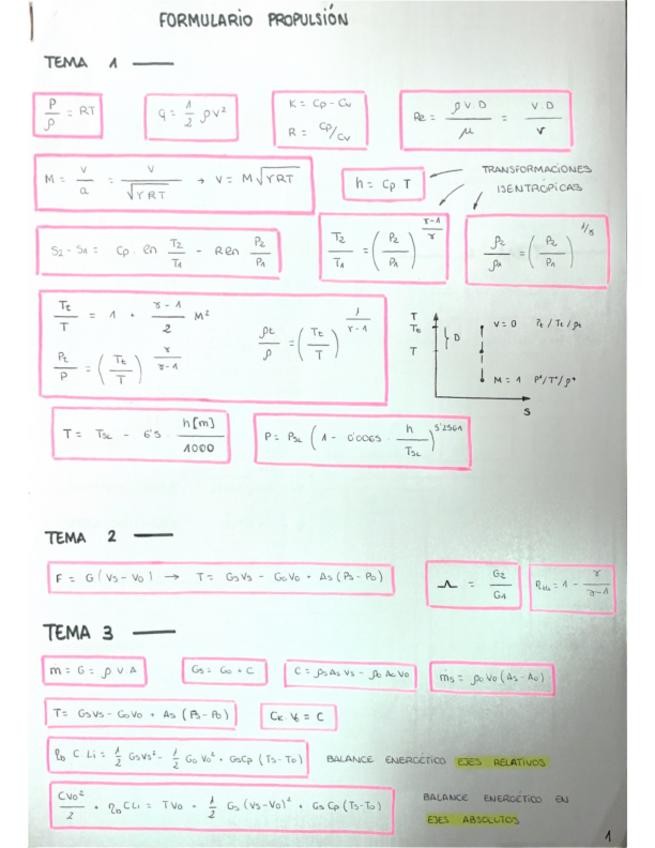 FORMULARIO PROPULSIÓN
TEMA 1 —
P/ρ = RT
q = 1/2 ρv²
K = Cp - Cv
R = Cp/Cv
Re = ρV.D/μ = V.D/ν
M = V/a = V/√(γRT) → V = M√(γRT)
h = Cp T
TRANSFORMACIONES
ISENTRÓPICAS
S2 - S1 = Cp · ln T2/T1 - R ln P2/P1
T2/T1 = (P2/P1)^((γ-1)/γ)
ρ2/ρ1 = (P2/P1)^(1/γ)
Tt/T = 1 + (γ-1)/2 M²
ρt/ρ = (Tt/T)^(1/(γ-1))
Pt/P = (Tt/T)^(γ/(γ-1))
T
Tt
T
D
V=0 Pt/Tt/ρt
M=1 P*/T*/ρ*
S
T = TSL - 6'5 · h[m]/1000
P = PSL (1 - 0'0065 · h/TSL)^5'2561
TEMA 2 —
F = G(Vs - Vo) → T = GsVs - GoVo + As(Ps - Po)
Λ = G2/G1
= 1 - γ/(γ-1)
TEMA 3 —
m = G = ρ V A
Gs = Go + C
C = ρsAsVs - ρoAoVo
ṁs = ρoVo(As - Ao)
T = GsVs - GoVo + As(Ps - Po)
= C
C Li = 1/2 GsVs² - 1/2 GoVo² + GsCp(Ts - To) BALANCE ENERGÉTICO EJES RELATIVOS
CVo²/2 + CLi = TVo + 1/2 Gs(Vs - Vo)² + GsCp(Ts - To)
BALANCE ENERGÉTICO EN
EJES ABSOLUTOS
1